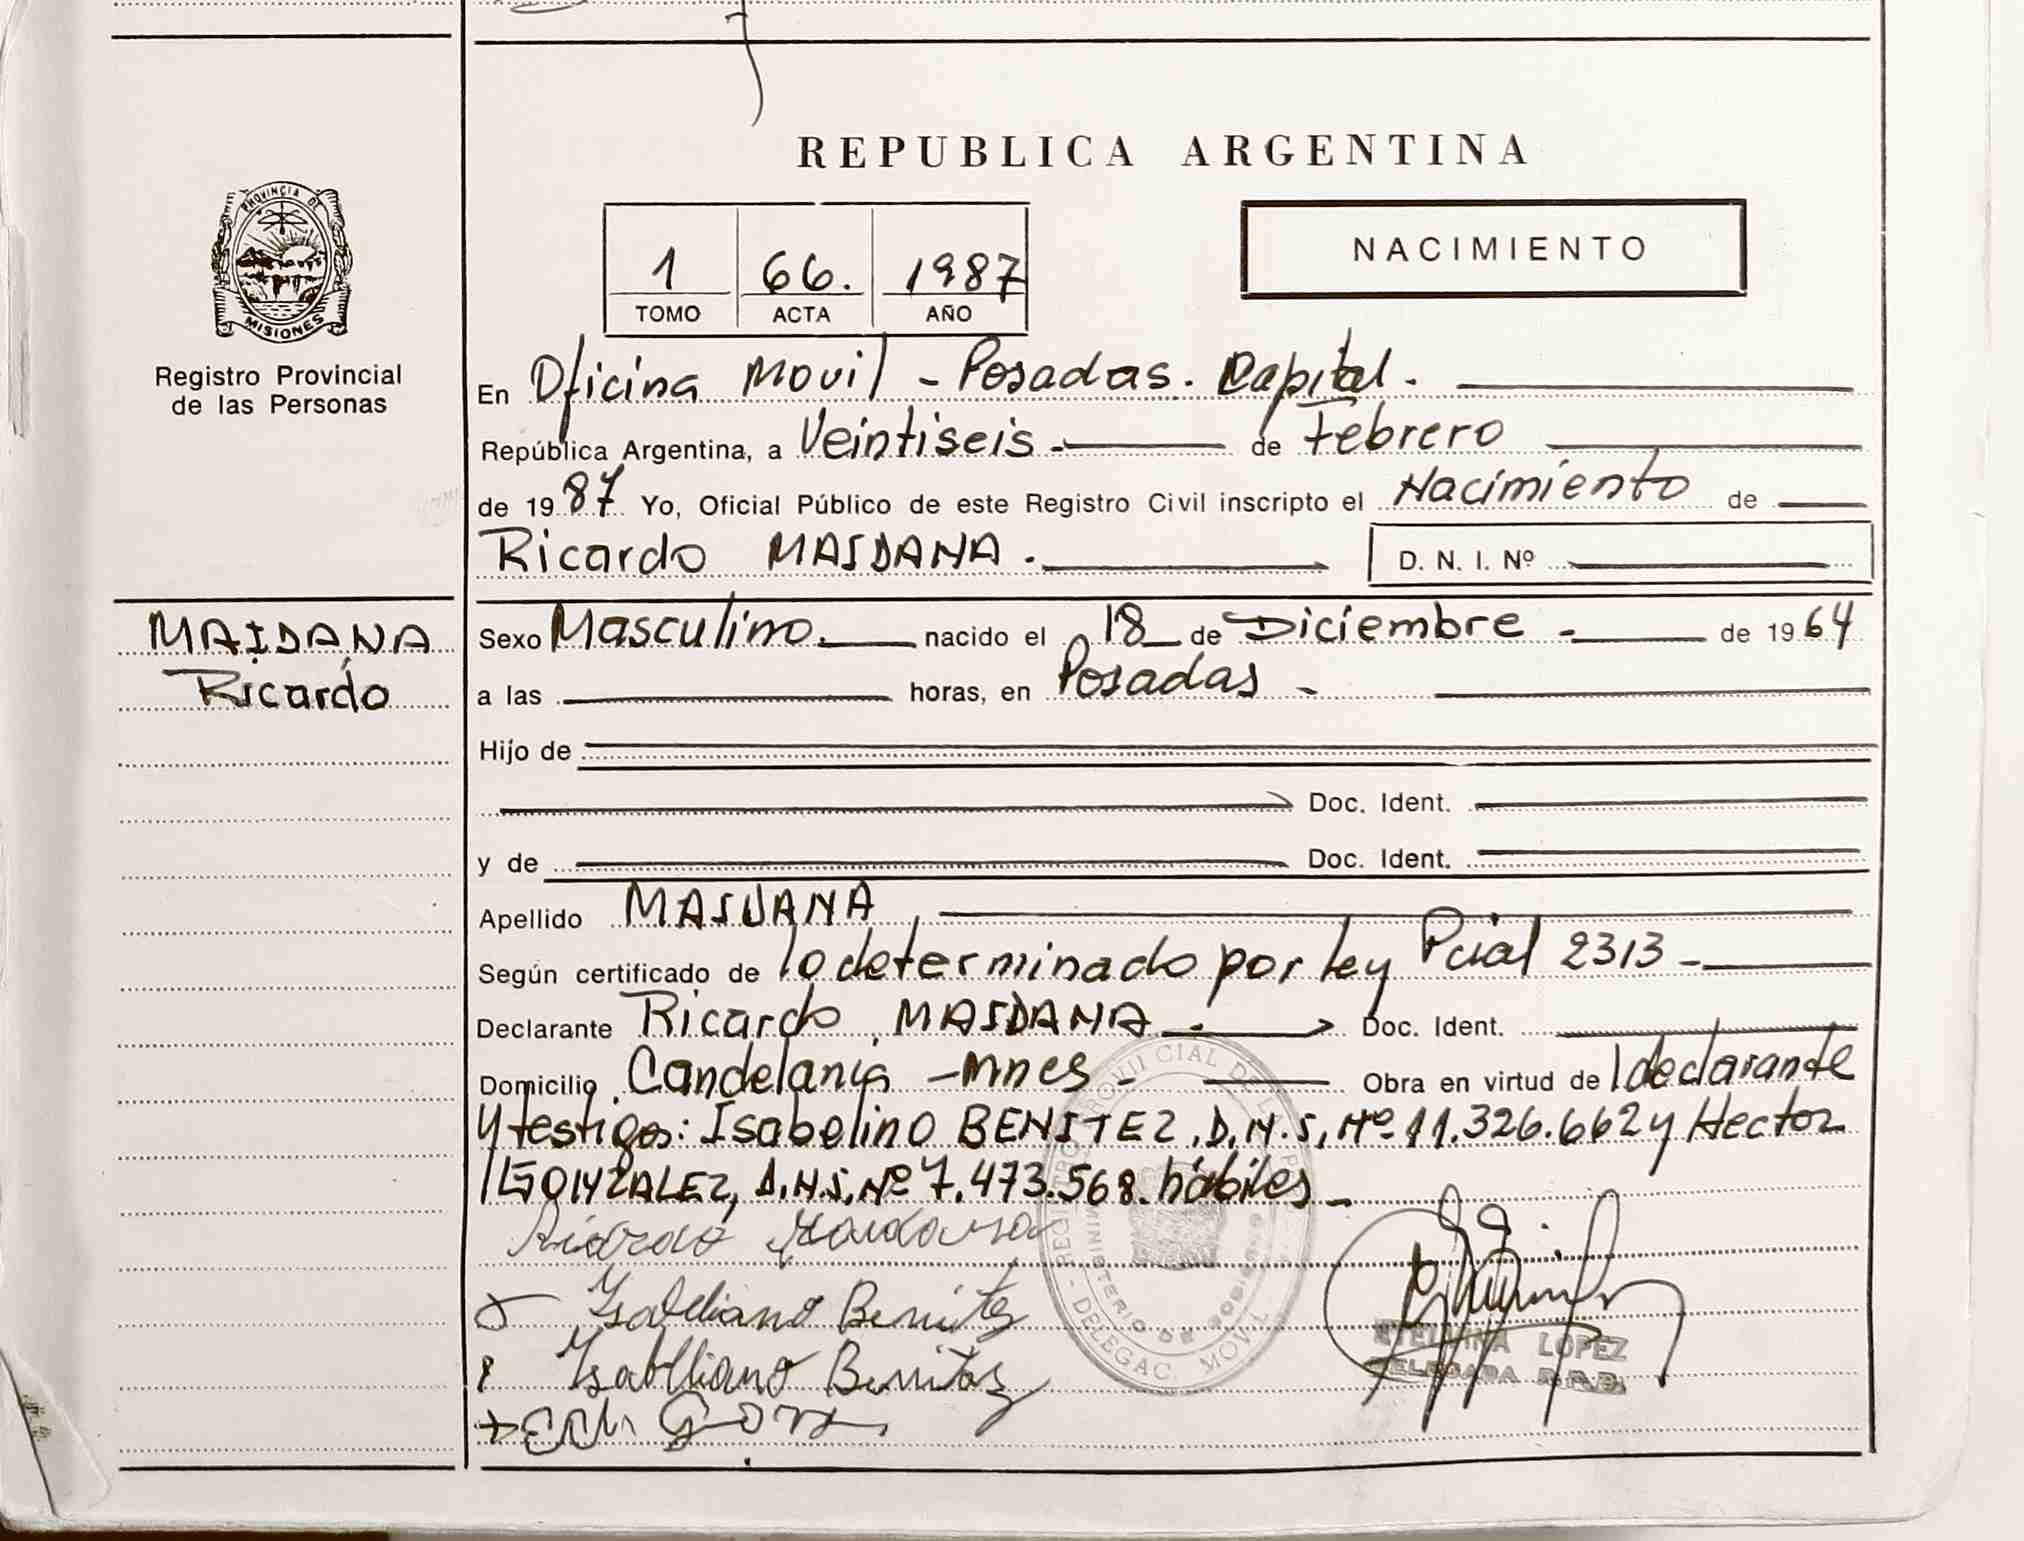 REPUBLICA ARGENTINA
PROVINCIA DE
MISIONES
Registro Provincial
de las Personas
1 66. 1987
TOMO ACTA AÑO
NACIMIENTO
En Oficina Movil - Posadas. Capital.
República Argentina, a Veintiseis de Febrero
de 1987 Yo, Oficial Público de este Registro Civil inscripto el Nacimiento de
Ricardo MAIDANA. D. N. I. Nº
MAIDANA
Ricardo
Sexo Masculino. nacido el 18 de Diciembre - de 1964
a las horas, en Posadas -
Hijo de
Doc. Ident.
y de Doc. Ident.
Apellido MAIDANA
Según certificado de lo determinado por ley Pcial 2313 -
Declarante Ricardo MAIDANA - Doc. Ident.
Domicilio Candelaria - Mnes - Obra en virtud de l declarante
y testigos: Isabelino BENITEZ, D.N.I. Nº 11.326.662 y Hector
GONZALEZ, D.N.I. Nº 7.473.568. hábiles -
Ricardo Maidana
Benitez
Benitez
REGISTRO PROVINCIAL DE LAS PERSONAS
MINISTERIO DE GOBIERNO
DELEGAC. MOVIL
LOPEZ
DELEGADA R.P.P.